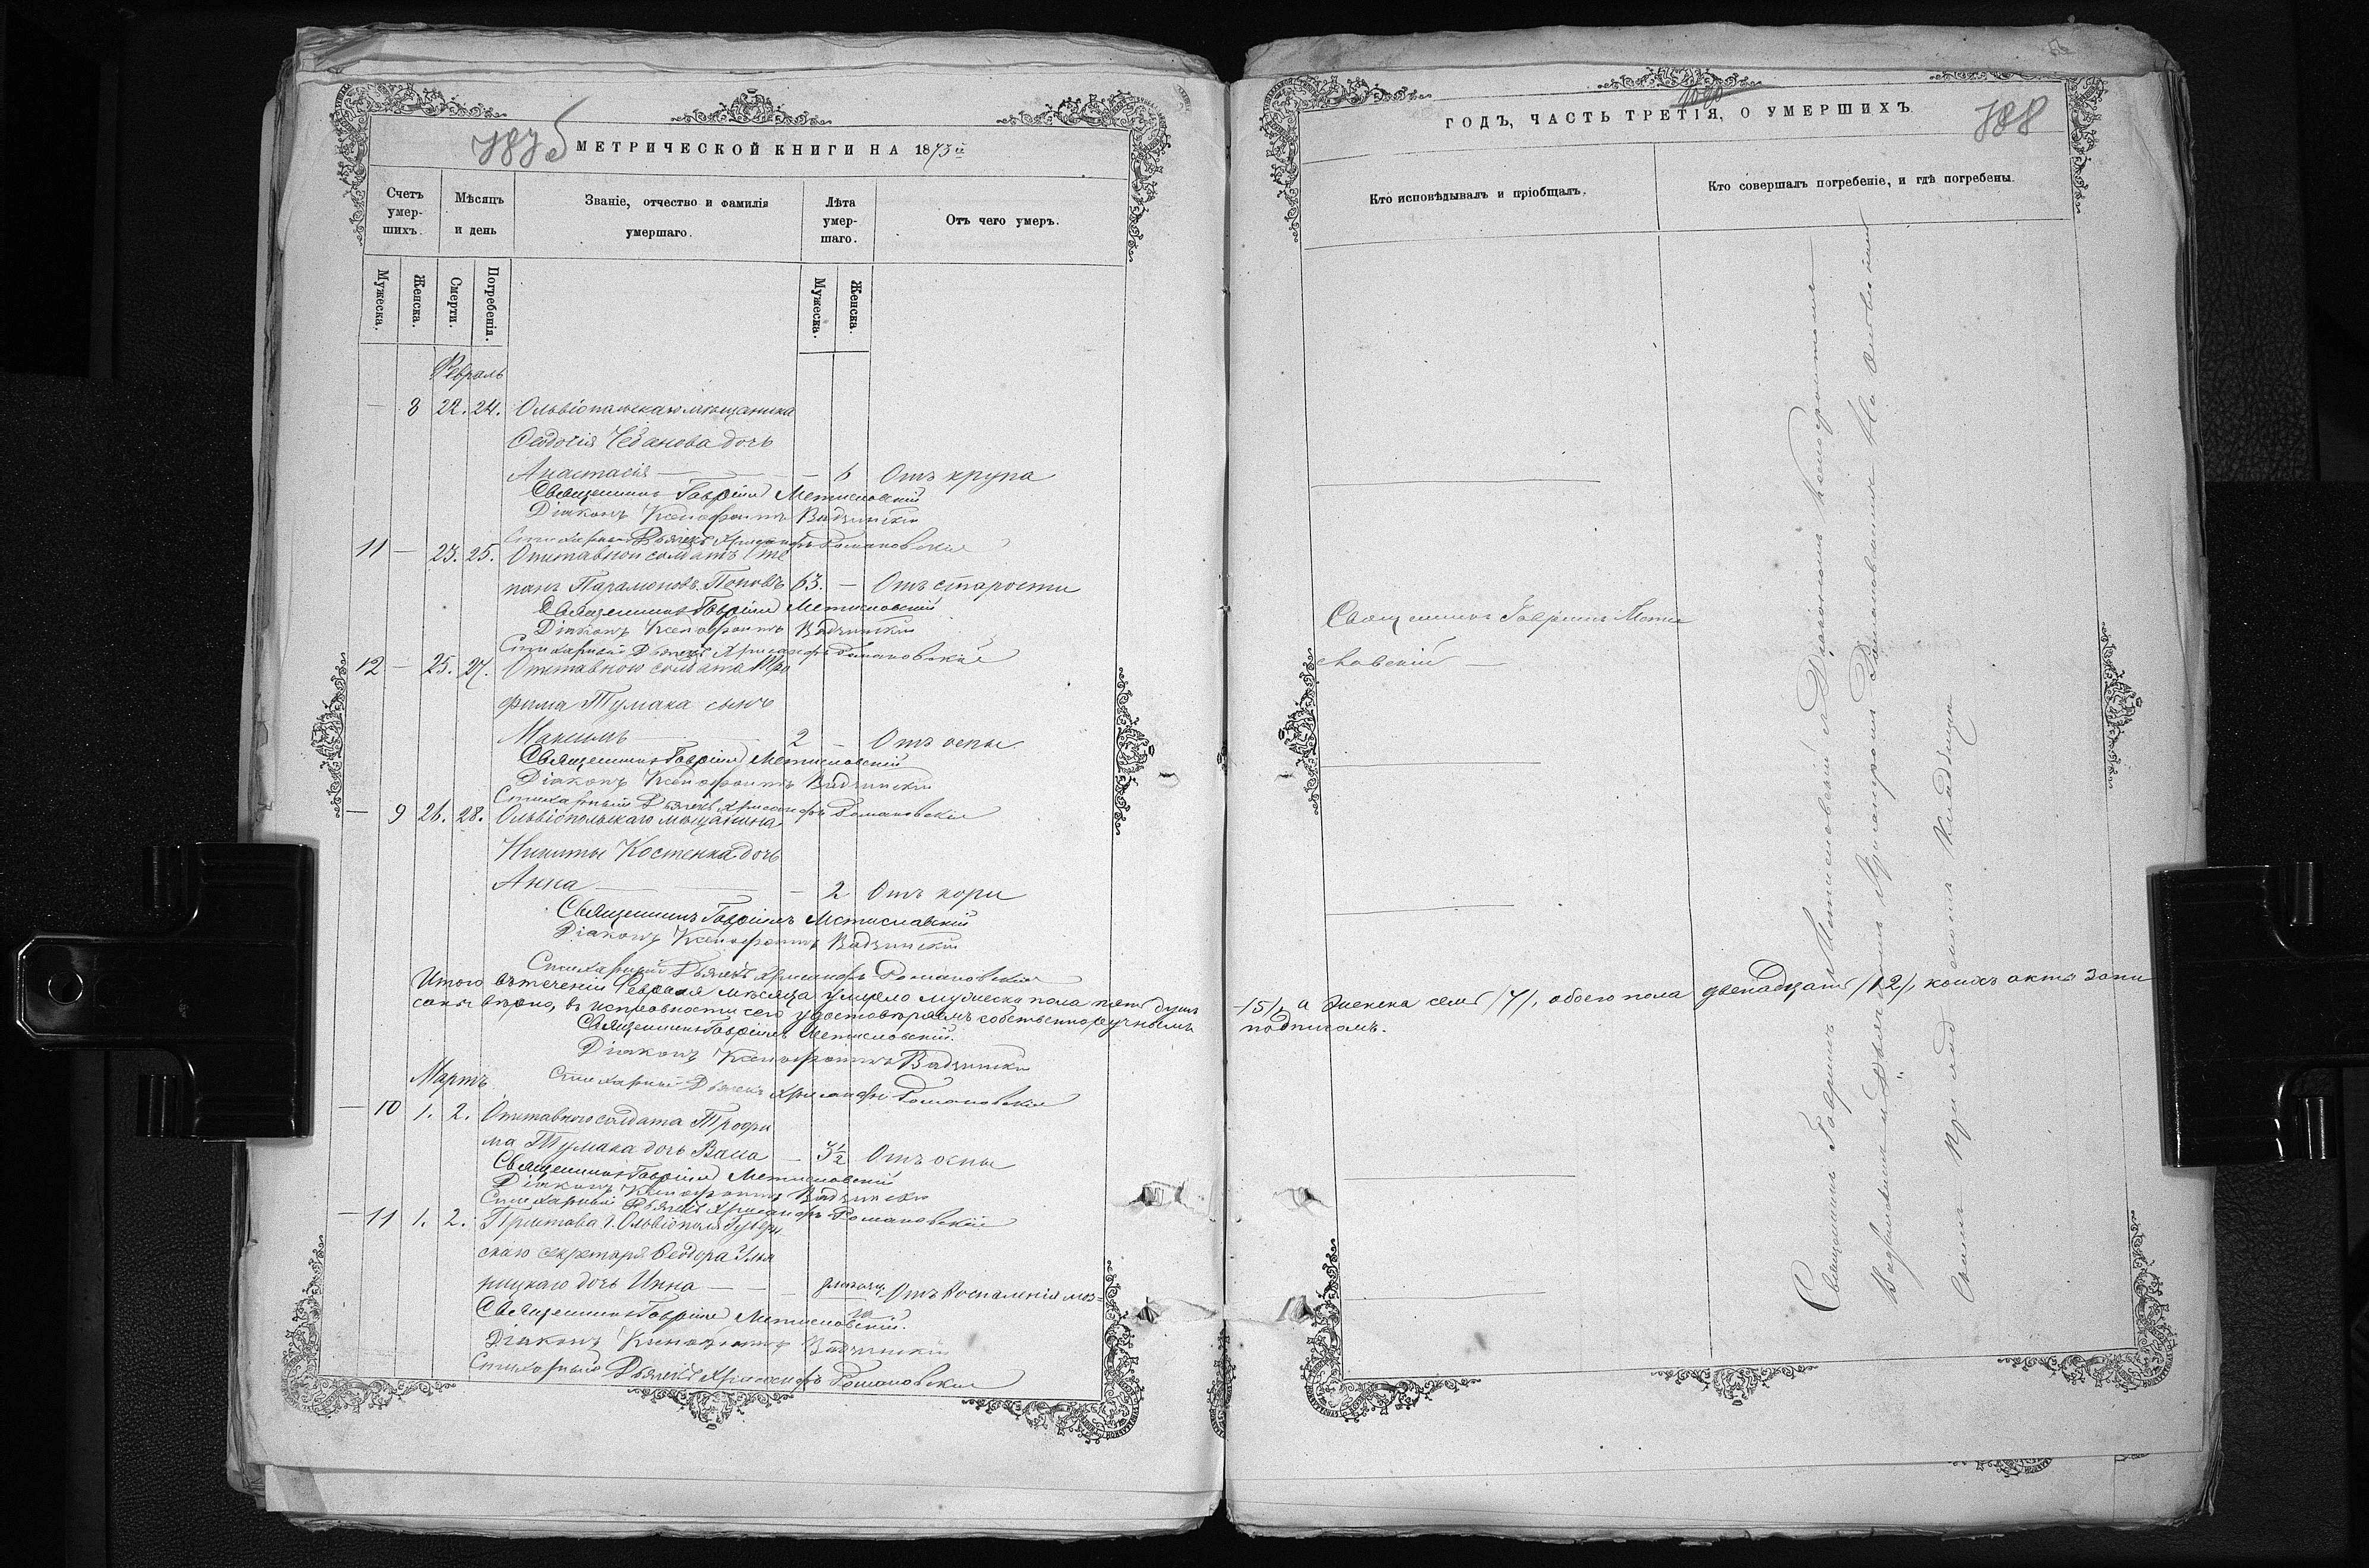 МЕТРИЧЕСКОЙ КНИГИ НА 1873й
Счетъ умер- шихъ.
Мѣсяцъ и день
Званіе, отчество и фамилія умершаго.
Лѣта умер- шаго.
Отъ чего умеръ.
Мужеска.
Женска.
Смерти.
Погребенія.
Мужеска.
Женска.
Февраль
— 8 22. 24. Ольвіопольскаго мѣщанина
Ѳеодосія Чебанова дочь
Анастасія — — — 6 Отъ крупа
Священникъ Гавріилъ Мстиславскій
Діаконъ Ксенофонтъ Вадзинскій
Стихарный Дьячекъ Хрисанфъ Романовскій
11 — 23. 25. Отставной солдатъ Сте
панъ Парамоновъ Поповъ 63. — Отъ старости
Священникъ Гавріилъ Мстиславскій
Діаконъ Ксенофонтъ Вадзинскій
Стихарный Дьячекъ Хрисанфъ Романовскій
12 — 25. 27. Отставного солдата Тро
фима Тумака сынъ
Максимъ — 2 — Отъ оспы
Священникъ Гавріилъ Мстиславскій
Діаконъ Ксенофонтъ Вадзинскій
Стихарный Дьячекъ Хрисанфъ Романовскій
— 9 26. 28. Ольвіопольскаго мѣщанина
Никиты Костенка дочь
Анна — — — 2 Отъ кори
Священникъ Гавріилъ Мстиславскій
Діаконъ Ксенофонтъ Вадзинскій
Стихарный Дьячекъ Хрисанфъ Романовскій
Итого въ теченіи Февраля мѣсяца умерло мужеска пола пять душъ
саны вѣрно, въ исправности сего удостовѣряемъ собственноручнымъ
Священникъ Гавріилъ Мстиславскій.
Діаконъ Ксенофонтъ Вадзинскій
Стихарный Дьячекъ Хрисанфъ Романовскій
Мартъ
— 10 1. 2. Отставного солдата Трофи
ма Тумака дочь — 3½ Отъ оспы
Священникъ Гавріилъ Мстиславскій
Діаконъ Ксенофонтъ Вадзинскій
Стихарный Дьячекъ Хрисанфъ Романовскій
— 11 1. 2. Пристава г. Ольвіополя Губерн
скаго секретаря Ѳеодора
дочь Инна — — Отъ воспаленія моз=
га
Священникъ Гавріилъ Мстиславскій.
Діаконъ Ксенофонтъ Вадзинскій
Стихарный Дьячекъ Хрисанфъ Романовскій
ГОДЪ, ЧАСТЬ ТРЕТІЯ, О УМЕРШИХЪ.
788
Кто исповѣдывалъ и пріобщалъ.
Кто совершалъ погребеніе, и гдѣ погребены.
Священникъ Гавріилъ Мсти
славскій —
/5/, а женска семь /7/, обоего пола двенадцать /12/, коихъ акты запи
подписомъ.
Священникъ Гавріилъ Мстиславскій съ Діакономъ Ксенофонтомъ
Вадзинскимъ и Дьячкомъ Хрисанфомъ Романовскимъ На Ольвіополь
скомъ Приходскомъ Кладбищѣ